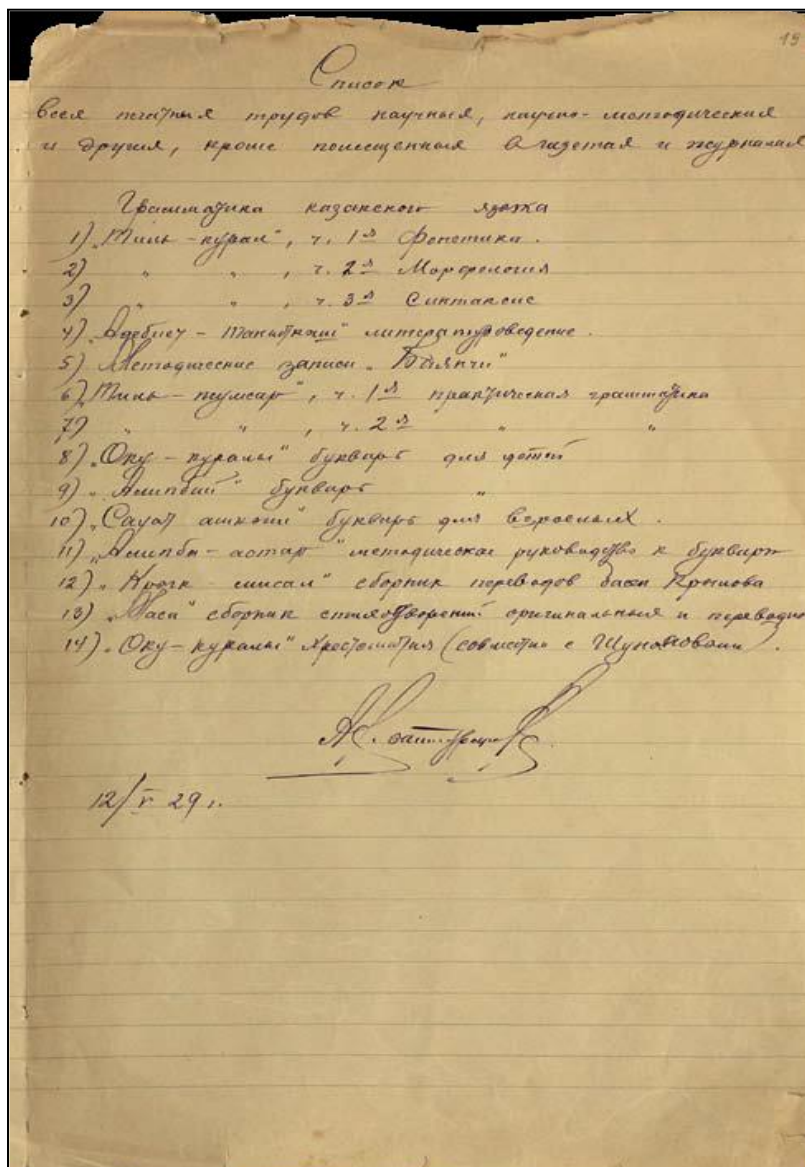 19
Список
всех печатных трудов научных, научно-методических
и других, кроме помещенных в газетах и журналах
Грамматика казакского языка
1) „Тиль-курал", ч. 1я Фонетика.
2) " " , ч. 2я Морфология
3) " " , ч. 3я Синтаксис
4) „Адебиет-таныткыш" литературоведение.
5) Методические записи „Баянчи"
6) „Тиль-жумсар", ч. 1я практическая грамматика
7) " " , ч. 2я " "
8) „Оку-куралы" букварь для детей
9) „Алипбий" букварь "
10) „Сауат ашкыш" букварь для взрослых.
11) „Алипби-астар" методическое руководство к букварю
12) „Крык-мисал" сборник переводов басен Крылова
13) „Маса" сборник стихотворений оригинальных и переводны
14) „Оку-куралы" хрестоматия (совместно с Шуновым).
А. Байтурсынов
12/V 29 г.